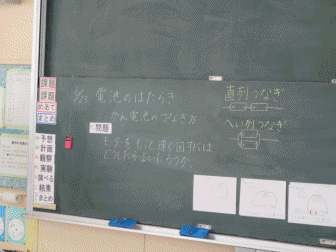 課題
課題
めあて
まとめ
予想
計画
観察
実験
調べる
結果
まとめ
6/23 電池のはたらき
かん電池のつなぎ方
問題
モーターをもっと速く回すには
どうしたらよいだろうか。
直列つなぎ
へい列つなぎ